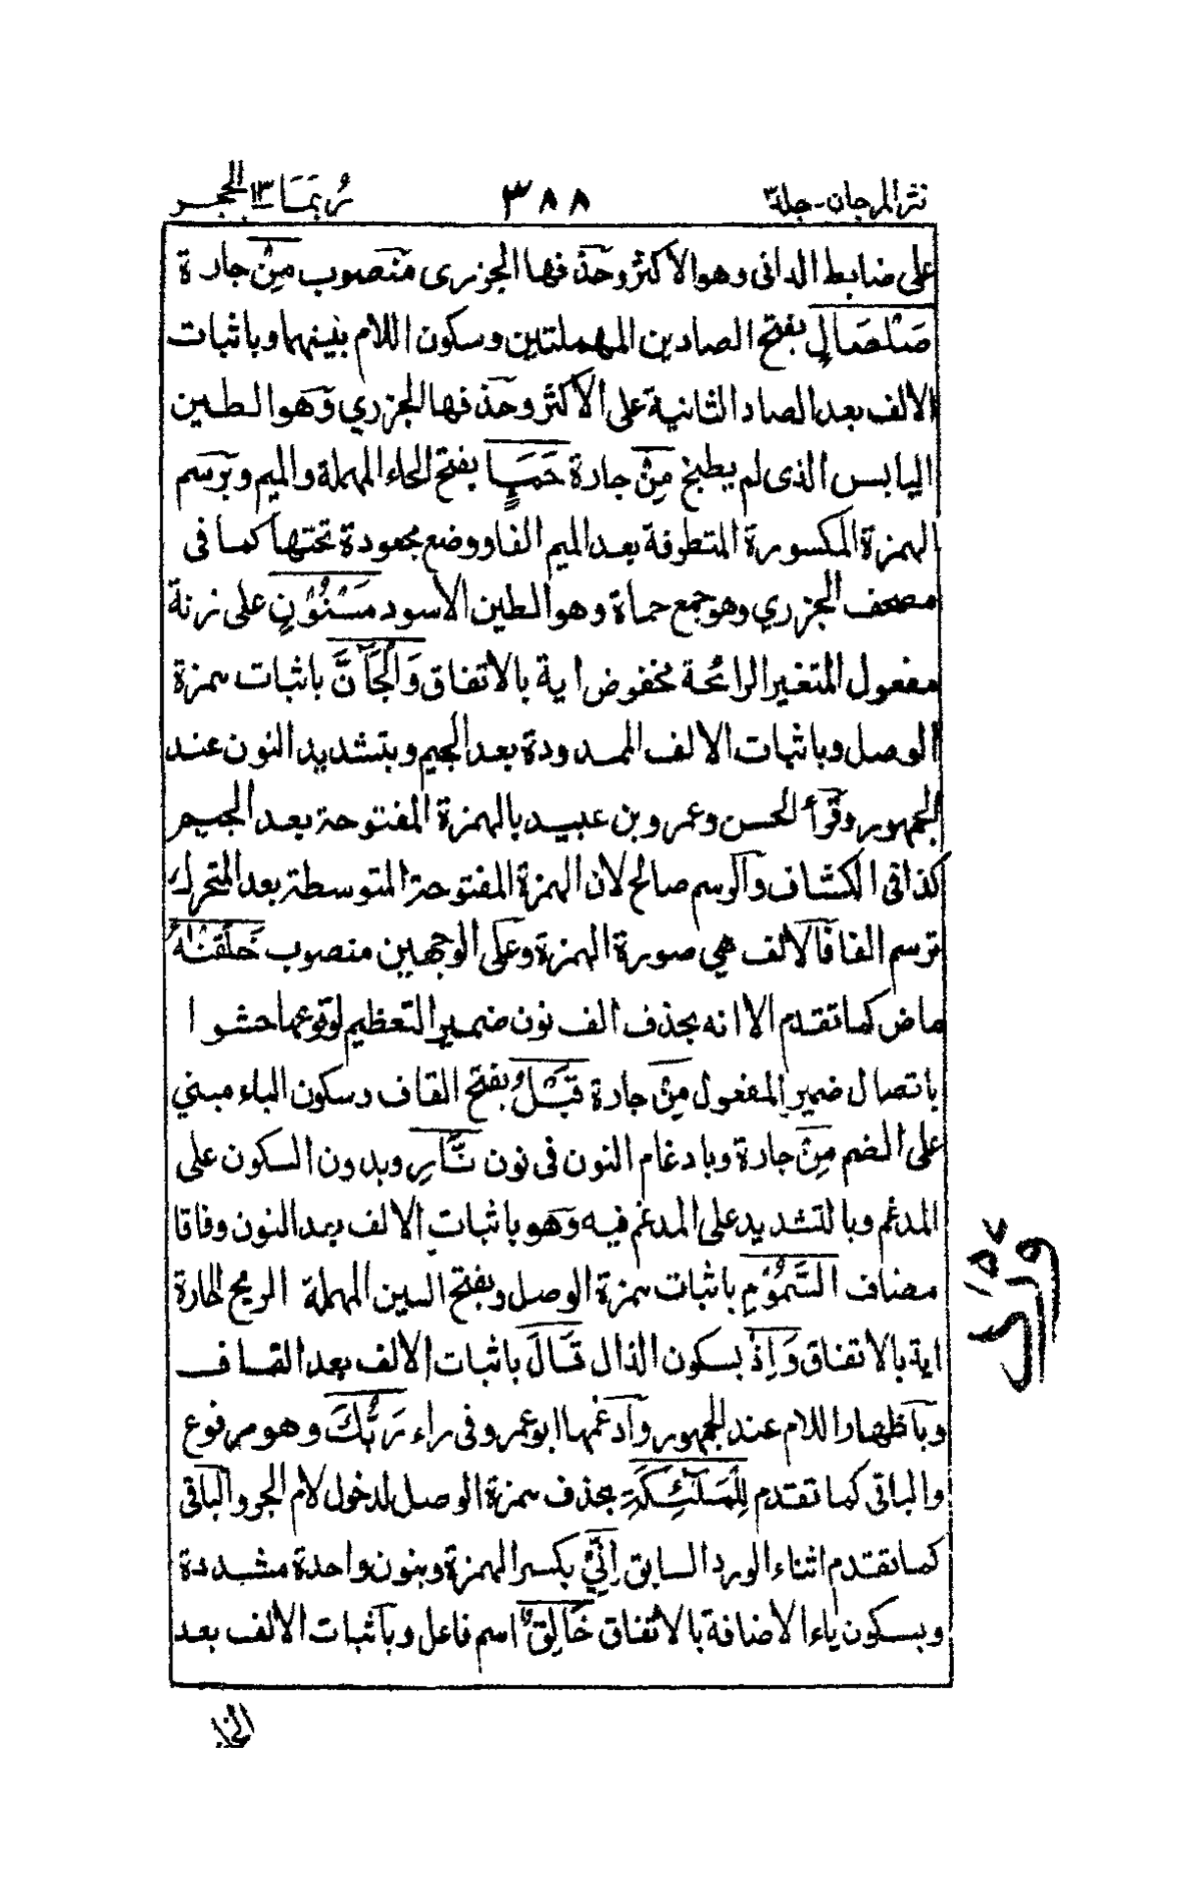 نثر المرجان - جلد٣ ٣٨٨ رُبَمَا ١٣ الحجر
على ضابط الدانى وهو الاكثر وحذفها الجزرى منصوب مِنْ جارة
صَلْصَالٍ بفتح الصادين المهملتين وسكون اللام بينهما وباثبات
الالف بعد الصاد الثانية على الاكثر وحذفها الجزري وهو الطين
اليابس الذى لم يطبخ مِنْ جارة حَمَاٍ بفتح الحاء المهملة والميم وبرسم
الهمزة المكسورة المتطرفة بعد الميم الفا ووضع مجعودة تحتها كما فى
مصحف الجزري وهو جمع حماة وهو الطين الاسود مَسْنُوْنٍ على زنة
مفعول المتغير الرائحة مخفوض اية بالاتفاق وَالْجَآنَّ باثبات همزة
الوصل وباثبات الالف الممدودة بعد الجيم وبتشديد النون عند
الجمهور وقرأ الحسن وعمرو بن عبيد بالهمزة المفتوحة بعد الجيم
كذا فى الكشاف والرسم صالح لان الهمزة المفتوحة المتوسطة بعد المتحرك
ترسم الفا فالالف هي صورة الهمزة وعلى الوجهين منصوب خَلَقْنٰهُ
ماض كما تقدم الا انه بحذف الف نون ضمير التعظيم لوقوعها حشوا
باتصال ضمير المفعول مِنْ جارة قَبْلُ بفتح القاف وسكون الباء مبني
على الضم مِنْ جارة وبادغام النون فى نون نَّارِ وبدون السكون على
المدغم وبالتشديد على المدغم فيه وهو باثبات الالف بعد النون وفاقا
مضاف السَّمُوْمِ باثبات همزة الوصل وبفتح السين المهملة الريح الحارة
اية بالاتفاق وَاِذْ بسكون الذال قَالَ باثبات الالف بعد القاف
وباظهار اللام عند الجمهور وادغمها ابو عمرو فى راء رَبُّكَ وهو مرفوع
والباقى كما تقدم لِلْمَلٰٓئِكَةِ بحذف همزة الوصل لدخول لام الجر والباقى
كما تقدم اثناء الورد السابق اِنِّيْ بكسر الهمزة وبنون واحدة مشددة
وبسكون ياء الاضافة بالاتفاق خَالِقٌ اسم فاعل وباثبات الالف بعد
الخاء